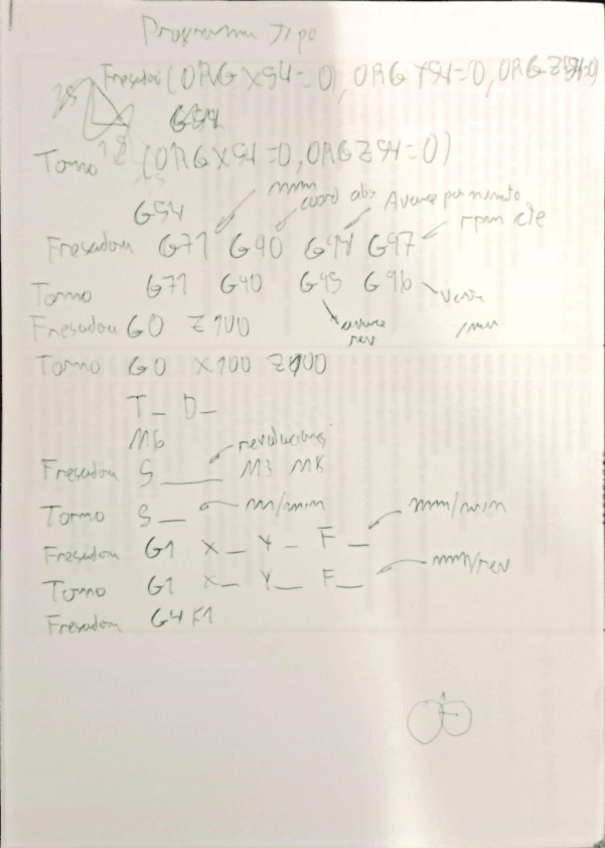 Programa Tipo
Fresadora (ORGX54=0), ORGY54=0, ORGZ54=0)
G54
Torno (ORGX54=0, ORGZ54=0)
G54
mm coord abs Avance por minuto rpm cte
Fresadora G71 G90 G94 G97
Torno G71 G90 G95 G96
avance rev /min
Fresadora G0 Z100
Torno G0 X100 Z100
T_ D_
M6
revoluciones
Fresadora S____ M3 M8
Torno S__ m/min
mm/min
Fresadora G1 X_ Y_ F_
Torno G1 X_ Y_ F_ mm/rev
Fresadora G4 K1